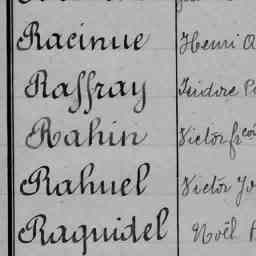 Racinue Henri
Raffray Isidore
Rahin Victor frçois
Rahuel Victor
Raquidel Noël